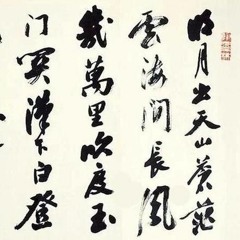 明月出天山蒼茫
雲海間長風
幾萬里吹度玉
門關漢下白登